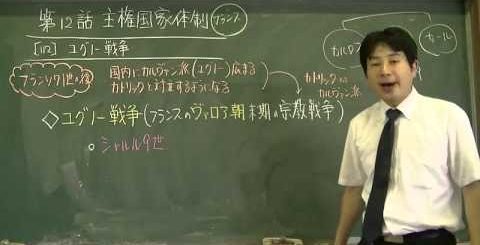 第12話 主権国家体制 フランス
[112] ユグノー戦争
フランソワ1世の後
国内にカルヴァン派(ユグノー)広まる
カトリックと対立するようになる
カトリック vs
カルヴァン派
◇ユグノー戦争(フランスのヴァロア朝末期の宗教戦争)
○シャルル9世
カール